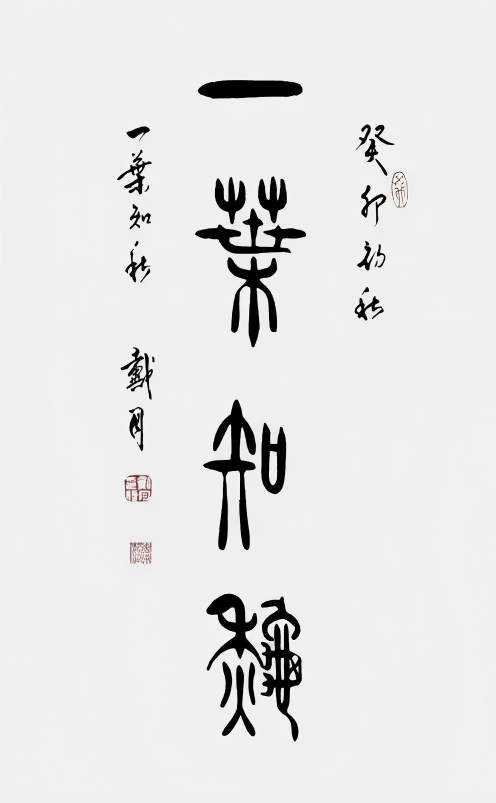 癸卯初秋
一葉知龝
一葉知秋 戴月